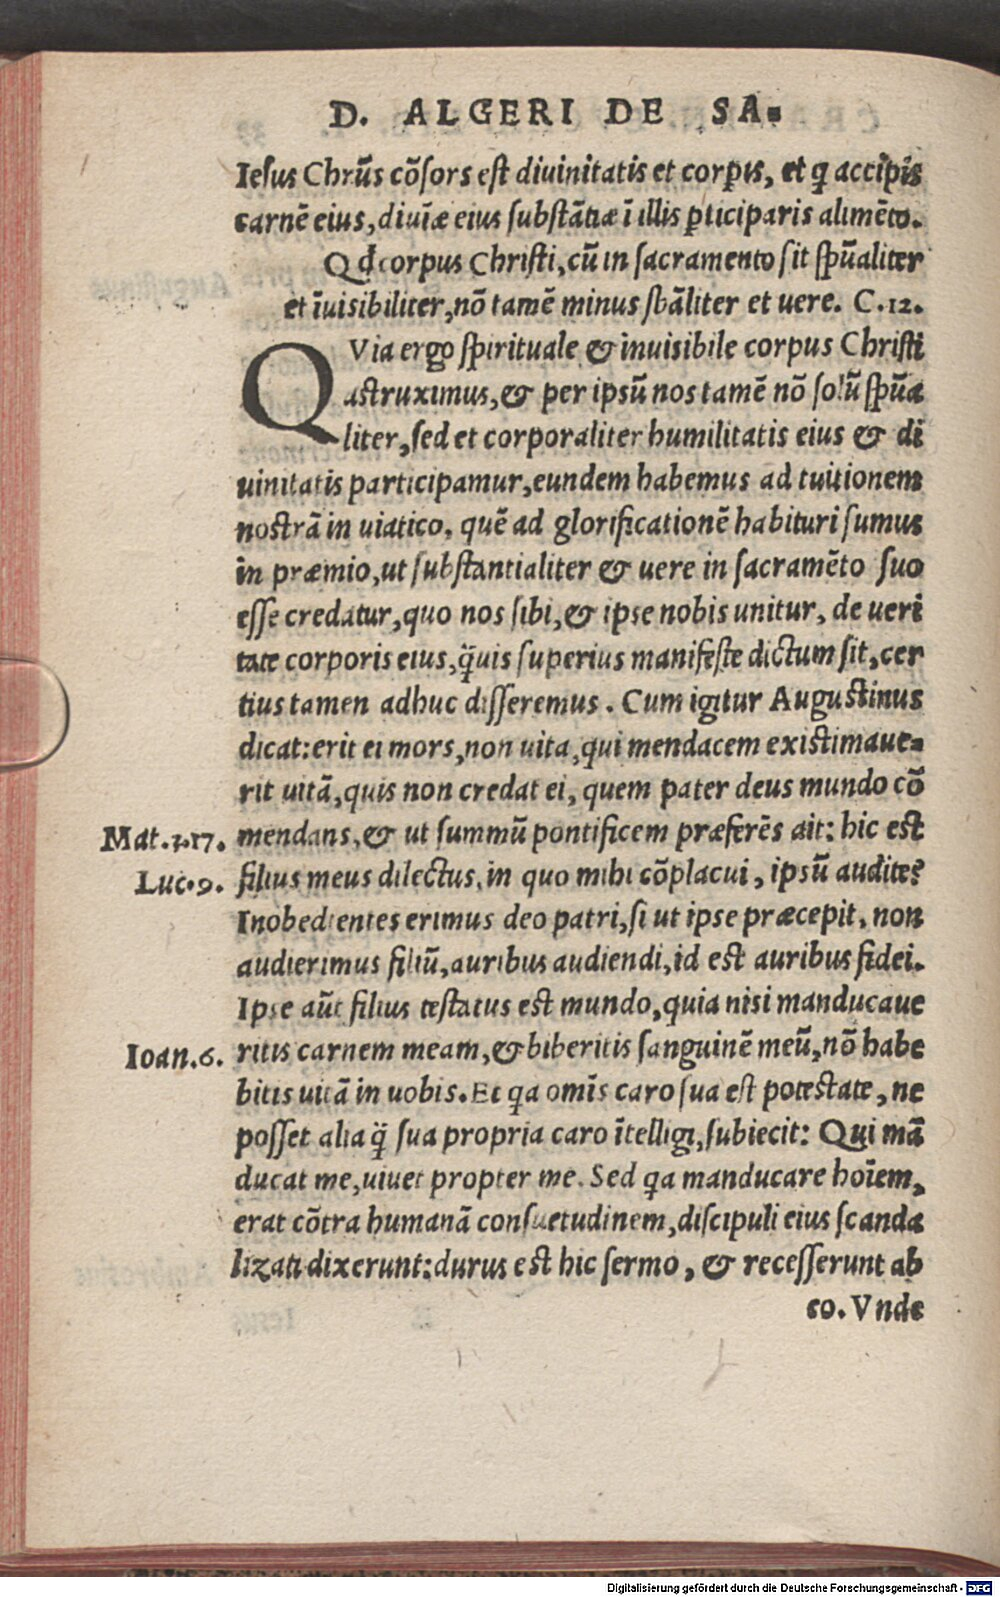 D. ALGERI DE SA-
Iesus Chrūs cōsors est diuinitatis et corpꝑis, et q accipis
carnē eius, diuīæ eius substātiæ ī illis ꝑticiparis alimēto.
Qđ corpus Christi, cū in sacramento sit sp̄ualiter
et īuisibiliter, nō tamē minus sbāliter et uere. C.12.
QVia ergo spirituale & inuisibile corpus Christi
astruximus, & per ipsū nos tamē nō solū spūa
liter, sed et corporaliter humilitatis eius & di
uinitatis participamur, eundem habemus ad tuitionem
nostrā in uiatico, quē ad glorificationē habituri sumus
in præmio, ut substantialiter & uere in sacramēto suo
esse credatur, quo nos sibi, & ipse nobis unitur, de ueri
tate corporis eius, q̄uis superius manifeste dictum sit, cer
tius tamen adhuc disseremus. Cum igitur Augustinus
dicat: erit ei mors, non uita, qui mendacem existimaue-
rit uitā, quis non credat ei, quem pater deus mundo cō
Mat. 3.17. mendans, & ut summū pontificem præferēs ait: hic est
Luc. 9. filius meus dilectus, in quo mihi cōplacui, ipsū audite?
Inobedientes erimus deo patri, si ut ipse præcepit, non
audierimus filiū, auribus audiendi, id est auribus fidei.
Ipse aūt filius testatus est mundo, quia nisi manducaue
Ioan. 6. ritis carnem meam, & biberitis sanguinē meū, nō habe
bitis uitā in uobis. Et qa omīs caro sua est potestate, ne
posset alia q̄ sua propria caro ītelligi, subiecit: Qui mā
ducat me, uiuet propter me. Sed qa manducare hoīem,
erat cōtra humanā consuetudinem, discipuli eius scanda
lizati dixerunt: durus est hic sermo, & recesserunt ab
eo. Vnde
Digitalisierung gefördert durch die Deutsche Forschungsgemeinschaft - DFG